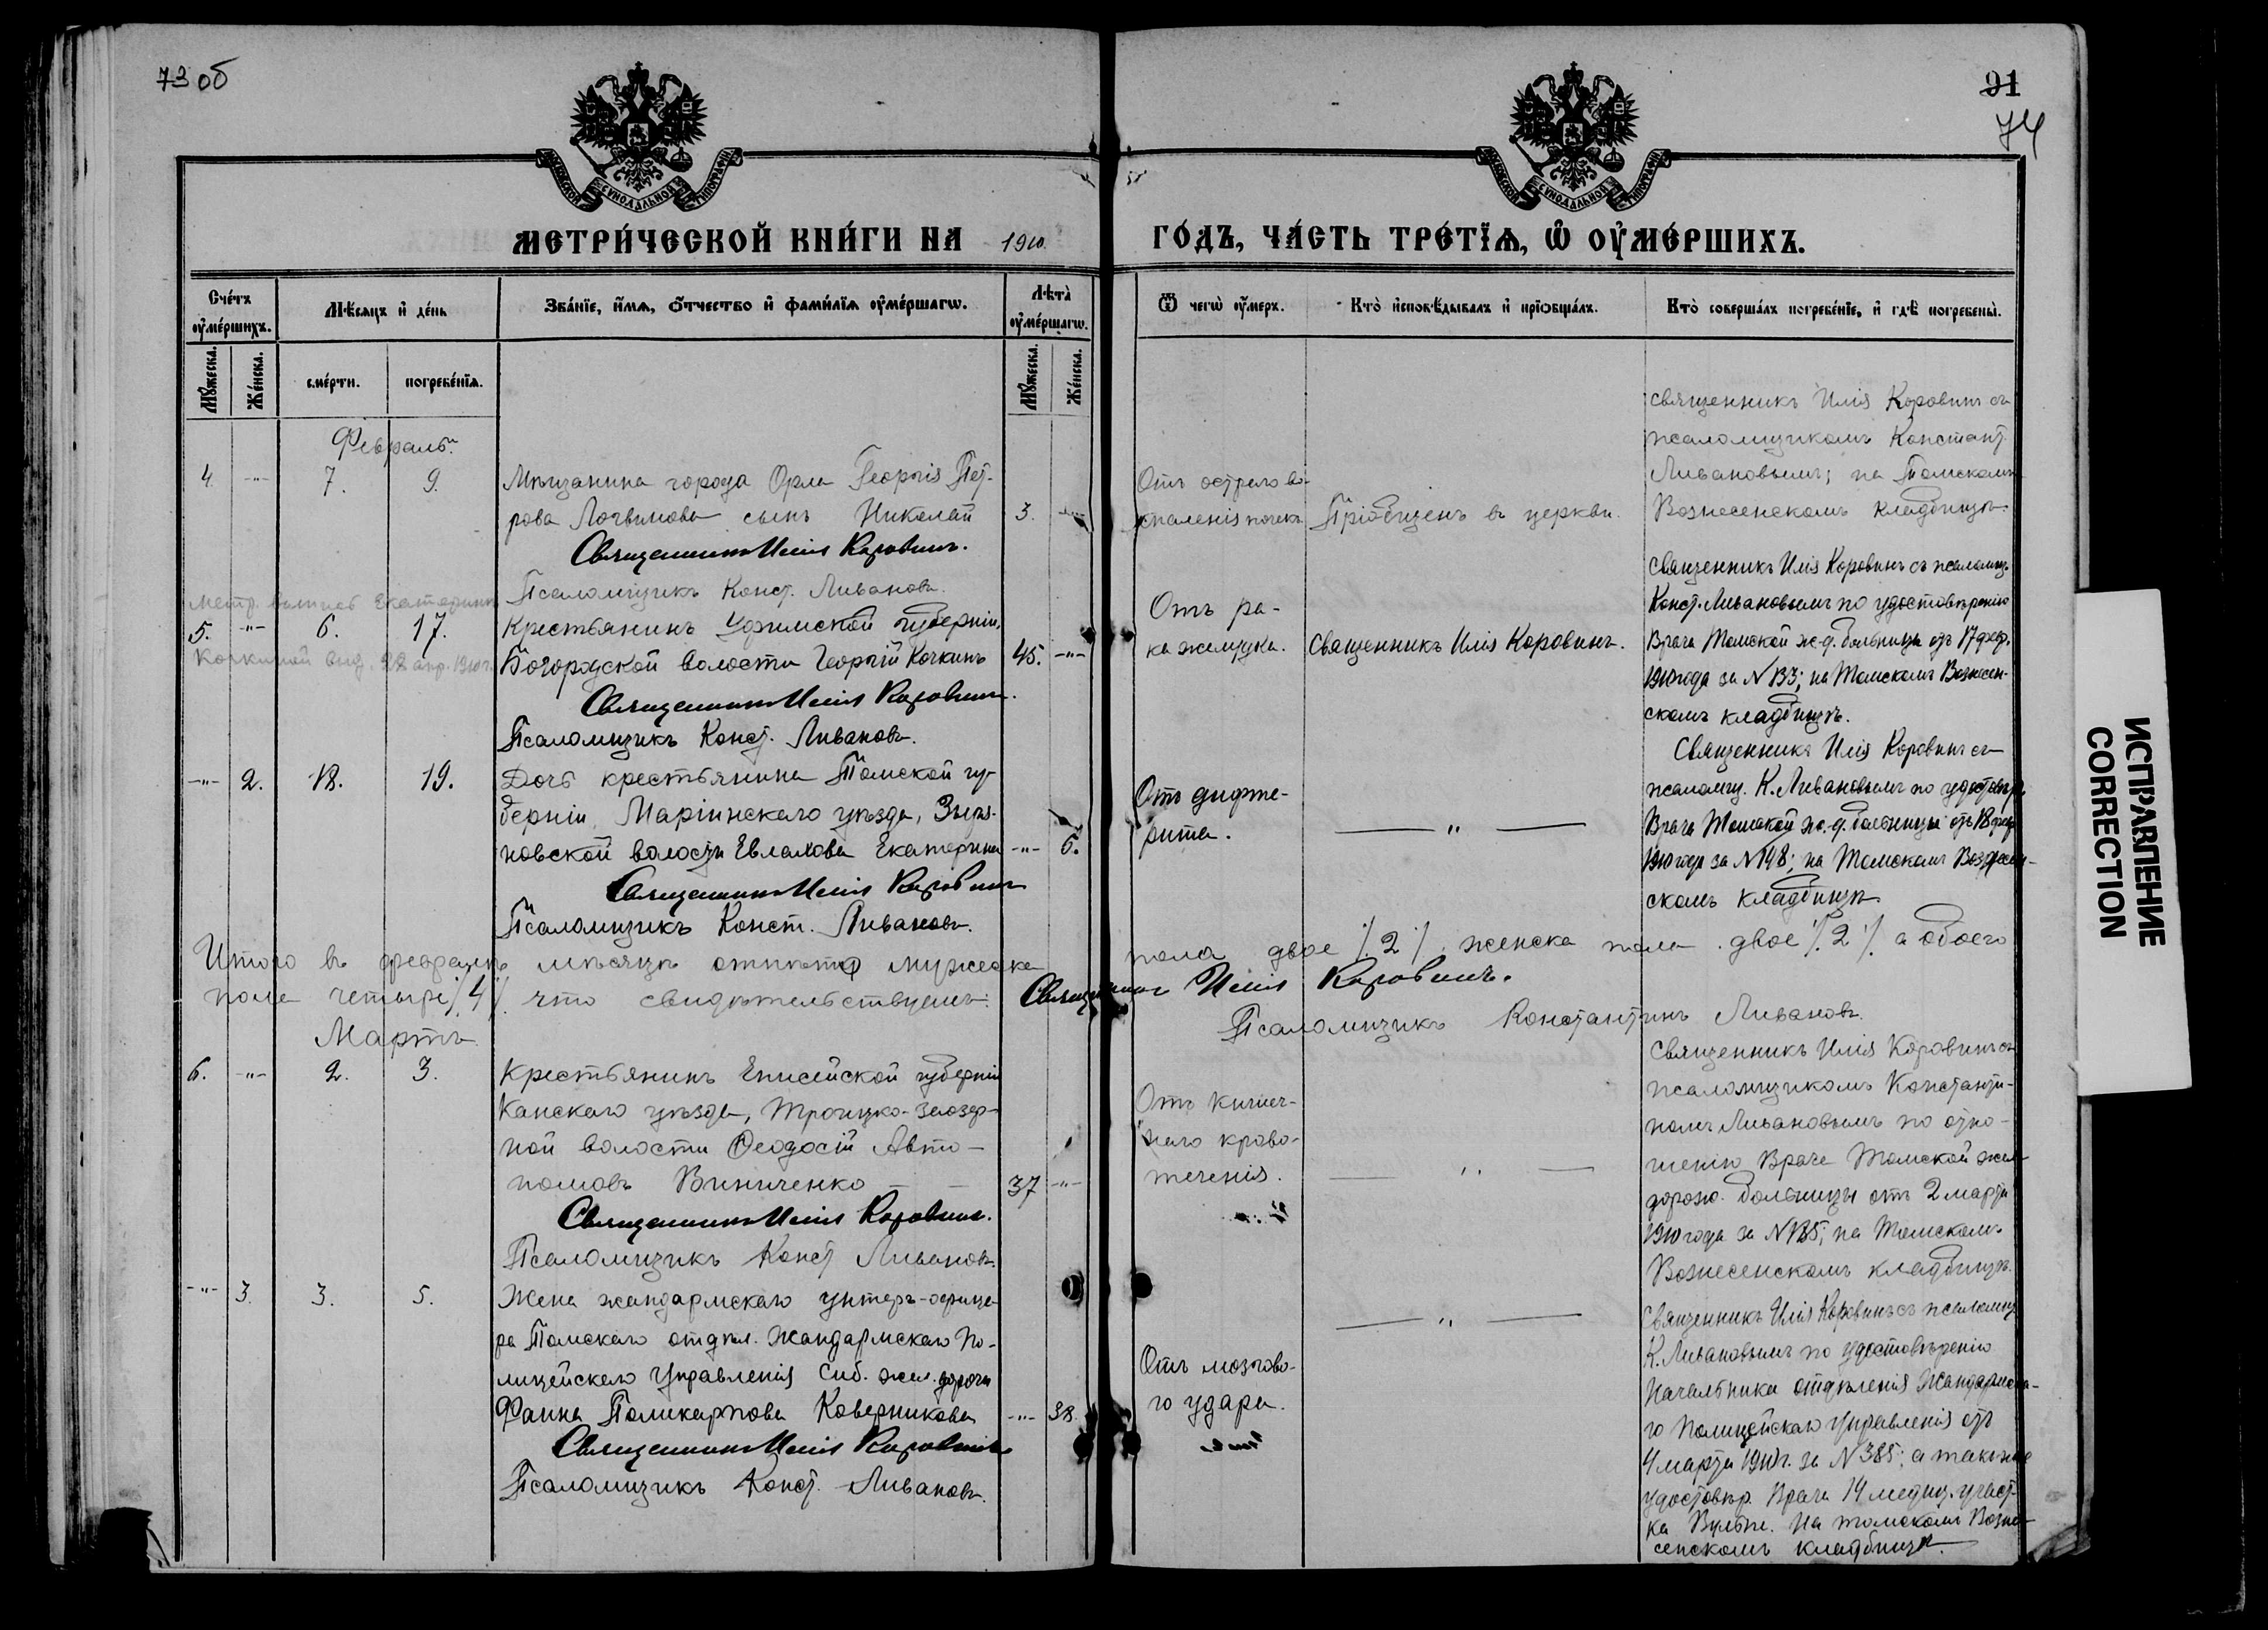 73 об
91
74
МОСКОВСКОЙ СѴНОДАЛЬНОЙ ТИПОГРАФІИ
МОСКОВСКОЙ СѴНОДАЛЬНОЙ ТИПОГРАФІИ
МЕТРИ́ЧЕСКОЙ КНИ́ГИ НА 1910
ГО́ДЪ, ЧА́СТЬ ТРЕ́ТЇѦ, Ѽ ОУ҆МЕ́РШИХЪ.
Сче́тъ оу҆ме́ршихъ.
Мѣ́сѧцъ и҆ де́нь
Зва́нїе, и҆́мѧ, ѻ҆́тчество и҆ фами́лїѧ оу҆ме́ршагѡ.
Лѣта̀ оу҆ме́ршагѡ.
Ѿ чегѡ̀ оу҆́меръ.
Кто̀ и҆сповѣ́дывалъ и҆ прїѡбща́лъ.
Кто̀ соверша́лъ погребе́нїе, и҆ гдѣ̀ погребены̀.
Мꙋ́жеска.
Же́нска.
сме́рти.
погребе́нїѧ.
Мꙋ́жеска.
Же́нска.
Февраль.
4. -"- 7. 9.
Мѣщанина города Орла Георгія Пет-
рова Логвинова сынъ Николай 3. -"-
Священникъ Илія Коровинъ.
Псаломщикъ Конст. Ливановъ.
Отъ остраго во-
спаленія почекъ
Пріобщенъ въ церкви.
священникъ Илія Коровинъ съ
псаломщикомъ Констант.
Ливановымъ; на Томскомъ
Вознесенскомъ кладбищѣ.
Метр. выпись Екатерин
5. -"- 6. 17.
Кочкиной выд. 22 апр. 1910 г.
Крестьянинъ Уфимской губерніи,
Богородской волости Георгій Кочкинъ 45. -"-
Священникъ Илія Коровинъ.
Псаломщикъ Конст. Ливановъ.
Отъ ра-
ка желудка.
Священникъ Илія Коровинъ.
Священникъ Илія Коровинъ съ псаломщ.
Конст. Ливановымъ по удостовѣренію
Врача Томской ж. д. больницы отъ 17 февр.
1910 года за № 133; на Томскомъ Вознесен-
скомъ кладбищѣ.
-"- 2. 18. 19.
Дочь крестьянина Томской гу-
берніи, Маріинскаго уѣзда, Зыря-
новской волости Евлахова Екатерина -"- 6.
Священникъ Илія Коровинъ
Псаломщикъ Конст. Ливановъ.
Отъ дифте-
рита.
— " —
Священникъ Илія Коровинъ съ
псаломщ. К. Ливановымъ по удостовѣр.
Врача Томской ж. д. больницы отъ 18 февр
1910 года за № 148; на Томскомъ Вознесен-
скомъ кладбищѣ
Итого въ февралѣ мѣсяцѣ отпѣто мужеска
пола двое /2/. женска пола двое /2/. а обоего
пола четыре /4/. что свидѣтельствуемъ. Священникъ Илія Коровинъ.
Псаломщикъ Константинъ Ливановъ.
Мартъ
6. -"- 2. 3.
Крестьянинъ Енисейской губерніи
Канскаго уѣзда, Троицко-Заозер-
ной волости Ѳеодосій Авто-
номовъ Винниченко — 37 -"-
Священникъ Илія Коровинъ.
Псаломщикъ Конст. Ливановъ.
Отъ кишеч-
наго крово-
теченія.
— " —
Священникъ Илія Коровинъ съ
псаломщикомъ Константи-
номъ Ливановымъ по отно-
шенію Врача Томской жел-
дорож. больницы отъ 2 марта
1910 года за № 135; на Томскомъ
Вознесенскомъ кладбищѣ.
-"- 3. 3. 5.
Жена жандармскаго унтеръ-офице-
ра Томскаго отдѣл. Жандармскаго По-
лицейскаго Управленія Сиб. жел. дороги
Фаина Поликарпова Коверникова -"- 38.
Священникъ Илія Коровинъ
Псаломщикъ Конст. Ливановъ.
Отъ мозгово-
го удара.
— " —
Священникъ Илія Коровинъ съ псаломщ
К. Ливановымъ по удостовѣренію
Начальника отдѣленія Жандармска-
го Полицейскаго Управленія отъ
4 марта 1910 г. за № 385; а также
удостовѣр. Врача 14 медиц. участ-
ка на томскомъ Возне-
сенскомъ кладбищѣ.
ИСПРАВЛЕНИЕ
CORRECTION